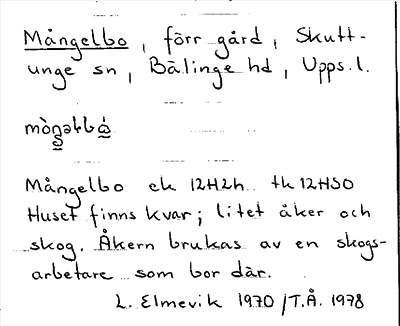 Mångelbo, förr gård, Skutt-
unge sn, Bälinge hd, Upps. l.
Mångelbo ek 12H2h tk 12H50
Huset finns kvar; litet åker och
skog. Åkern brukas av en skogs-
arbetare som bor där.
L. Elmevik 1970 / T.Å. 1978